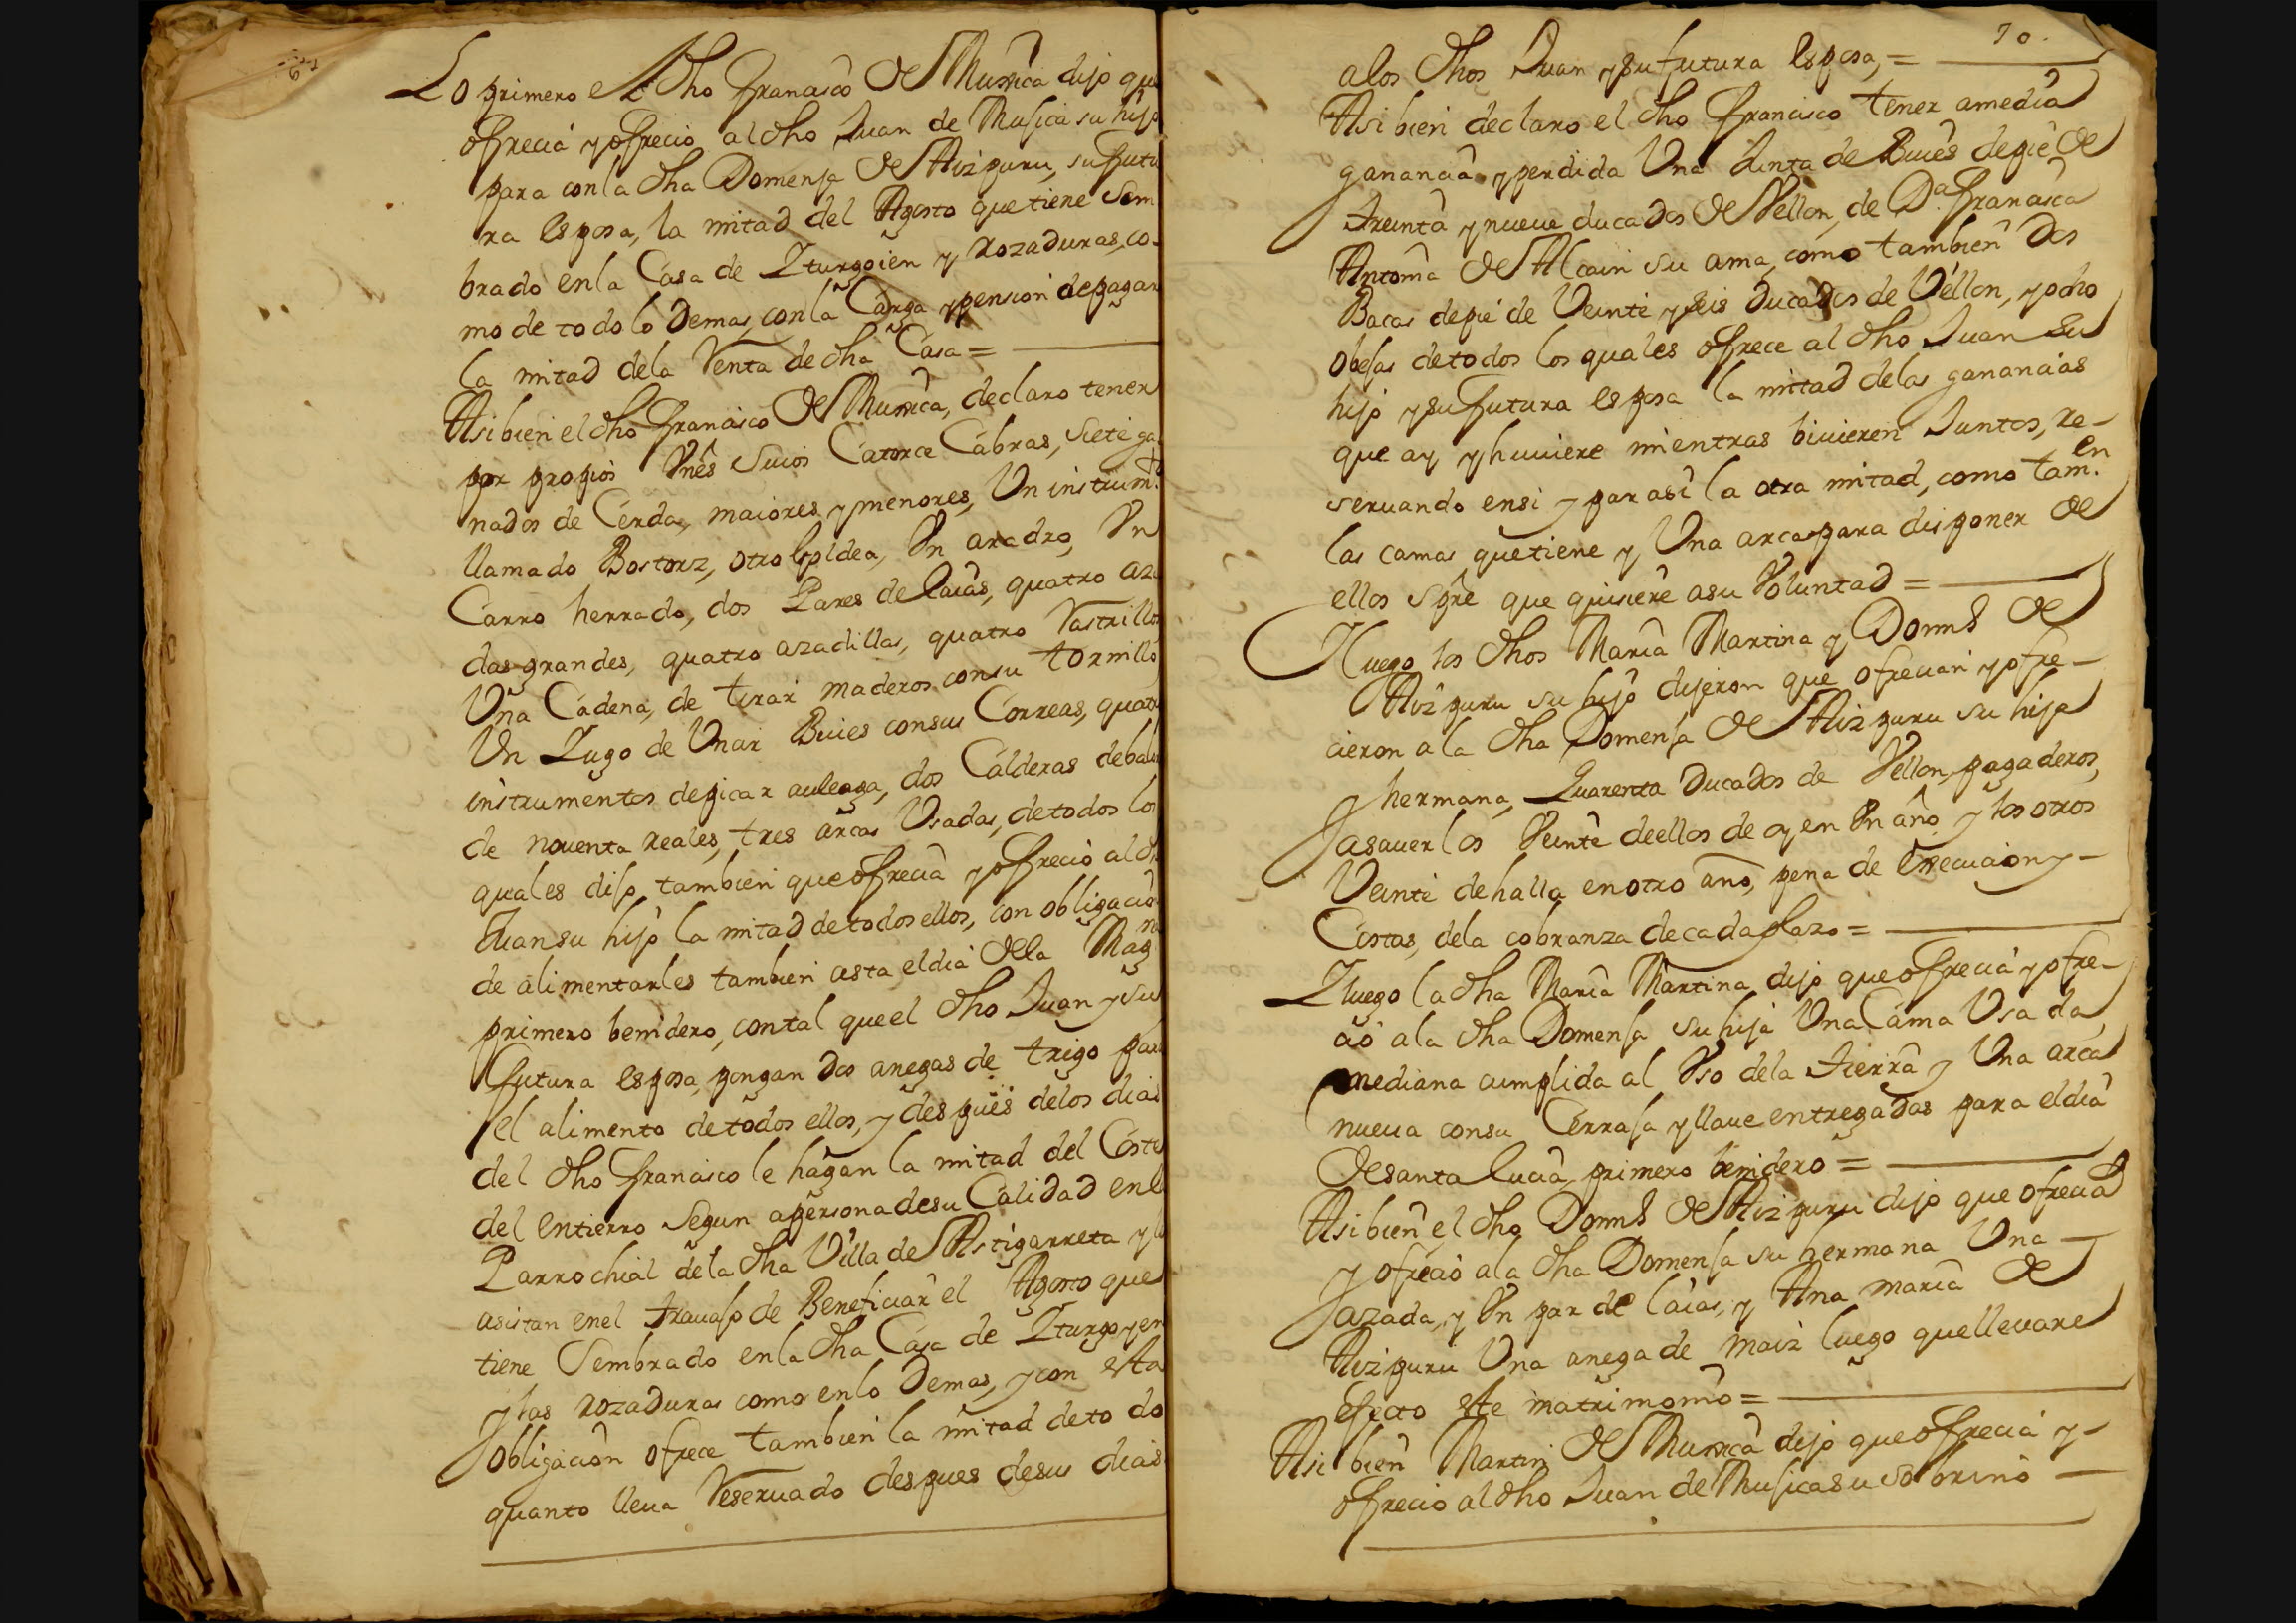 Lo primero el dho Francisco de Muxica dijo que
ofrecia y ofrecio al dho Juan de Musica su hijo
para con la dha Domenja de Aizpuru, su futu
ra esposa, la mitad del Agosto que tiene Sem
brado en la Casa de Yturgoien y Rozaduras, co-
mo de todo lo Demas, con la Carga y pension de pagar
la mitad dela Renta de dha Casa =
Asi bien el dho Francisco de Muxica, declaro tener
por propios Vnês Suios Catorce Cabras, siete ga
nados de Cerda, maiores y menores, Un instrumto.
llamado Bostorz, otro Espldea, Vn aradro, Vn
Carro herrado, dos Pares de laias, quatro aza
das grandes, quatro azadillas, quatro Rastrillos
Una Cadena, de tirar maderos con su tornillo
Un Yugo de Unir Buies con sus Correas, quatro
instrumentos de picar auleaga, dos Calderas de balor
de nouenta reales, tres arcas Usadas, de todos los
quales dijo, tambien que ofrecia y ofrecio al dho
Juan su hijo la mitad de todos ellos, con obligacion
de alimentarles tambien asta el dia dela Magna
primero benidero, con tal que el dho Juan y su
futura esposa, pongan dos anegas de trigo para
el alimento de todos ellos, y despues delos dias
del dho Francisco le hagan la mitad del Coste
del Entierro Segun a persona de su Calidad en la
Parrochial de la dha Villa de Astigarreta y la
asistan en el trauajo de Beneficiar el Agosto que
tiene Sembrado en la dha Casa de Yturgoyen
y las rozaduras como en lo Demas, y con esta
obligacion ofrece tambien la mitad de to do
quanto lleua Reseruado despues de sus dias
70.
a los dhos Juan y su futura esposa, =
Asi bien declaro el dho Francisco tener a media
ganancia y perdida Una Junta de Buies de pie de
treinta y nueue ducados de Vellon, de Da. Francisca
Antonia de Alcain su ama, como tambien Dos
Bacas de pie de Veinte y seis Ducados de Vellon, y ocho
obejas de todos los quales ofrece al dho Juan su
hijo y su futura esposa la mitad delas ganancias
que ay y huuiere mientras biuieren Juntos, re-
seruando en si y para si la otra mitad, como tam.en
las camas que tiene y Una arca para disponer de
ellos sôre que quisiere a su Voluntad =
Y luego los dhos Maria Martina y Domos de
Aizpuru su hijo dijeron que ofrecian y ofre-
cieron a la dha Domenja de Aizpuru su hija
y hermana, Quarenta Ducados de Vellon, pagaderos,
a sauer los Veinte de ellos de oy en Vn año y los otros
Veinte de halla en otro año, pena de Execucion y -
Costas, dela cobranza de cada plazo =
Y luego la dha Maria Martina dijo que ofrecia y ofre-
cio a la dha Domenja su hija Una Cama Usada
mediana cumplida al Vso dela tierra y Una arca
nueua con su Cerraja y llaue entregadas para el dia
de santa lucia, primero benidero =
Asi bien el dho Domos de Aizpuru dijo que ofrecia
y ofrecio a la dha Domenja su hermana Una
azada, y Vn par de laias, y Ana maria de
Aizpuru Una anega de maiz luego que lleuare
efecto este matrimonio =
Asi bien Martin de Muxica dijo que ofrecia y -
ofrecio al dho Juan de Musica su sobrino